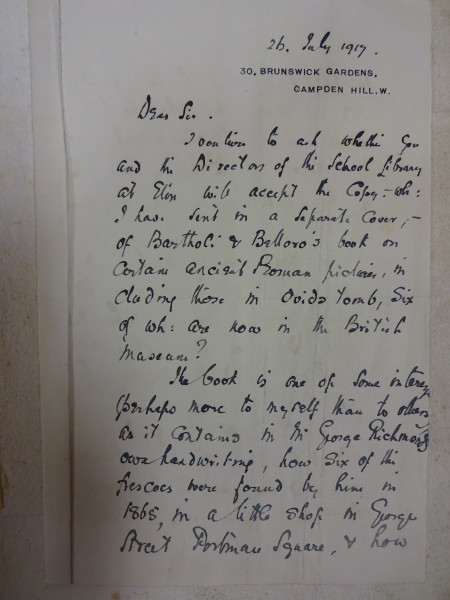 26. July 1917.
30, BRUNSWICK GARDENS,
CAMPDEN HILL. W.
Dear Sir.
I venture to ask whether you
and the Directors of the School Library
at Eton will accept the Copy - wh:
I have sent in a separate cover, -
of Bartholi & Bellori's book on
Certain ancient Roman pictures, in
cluding those in Ovids tomb, Six
of wh: are now in the British
Museum?
The book is one of some interest
perhaps more to myself than to others
as it contains in Mr George Richmond's
own handwriting, how six of the
frescoes were found by him in
1865, in a little shop in George
Street Portman Square, & how